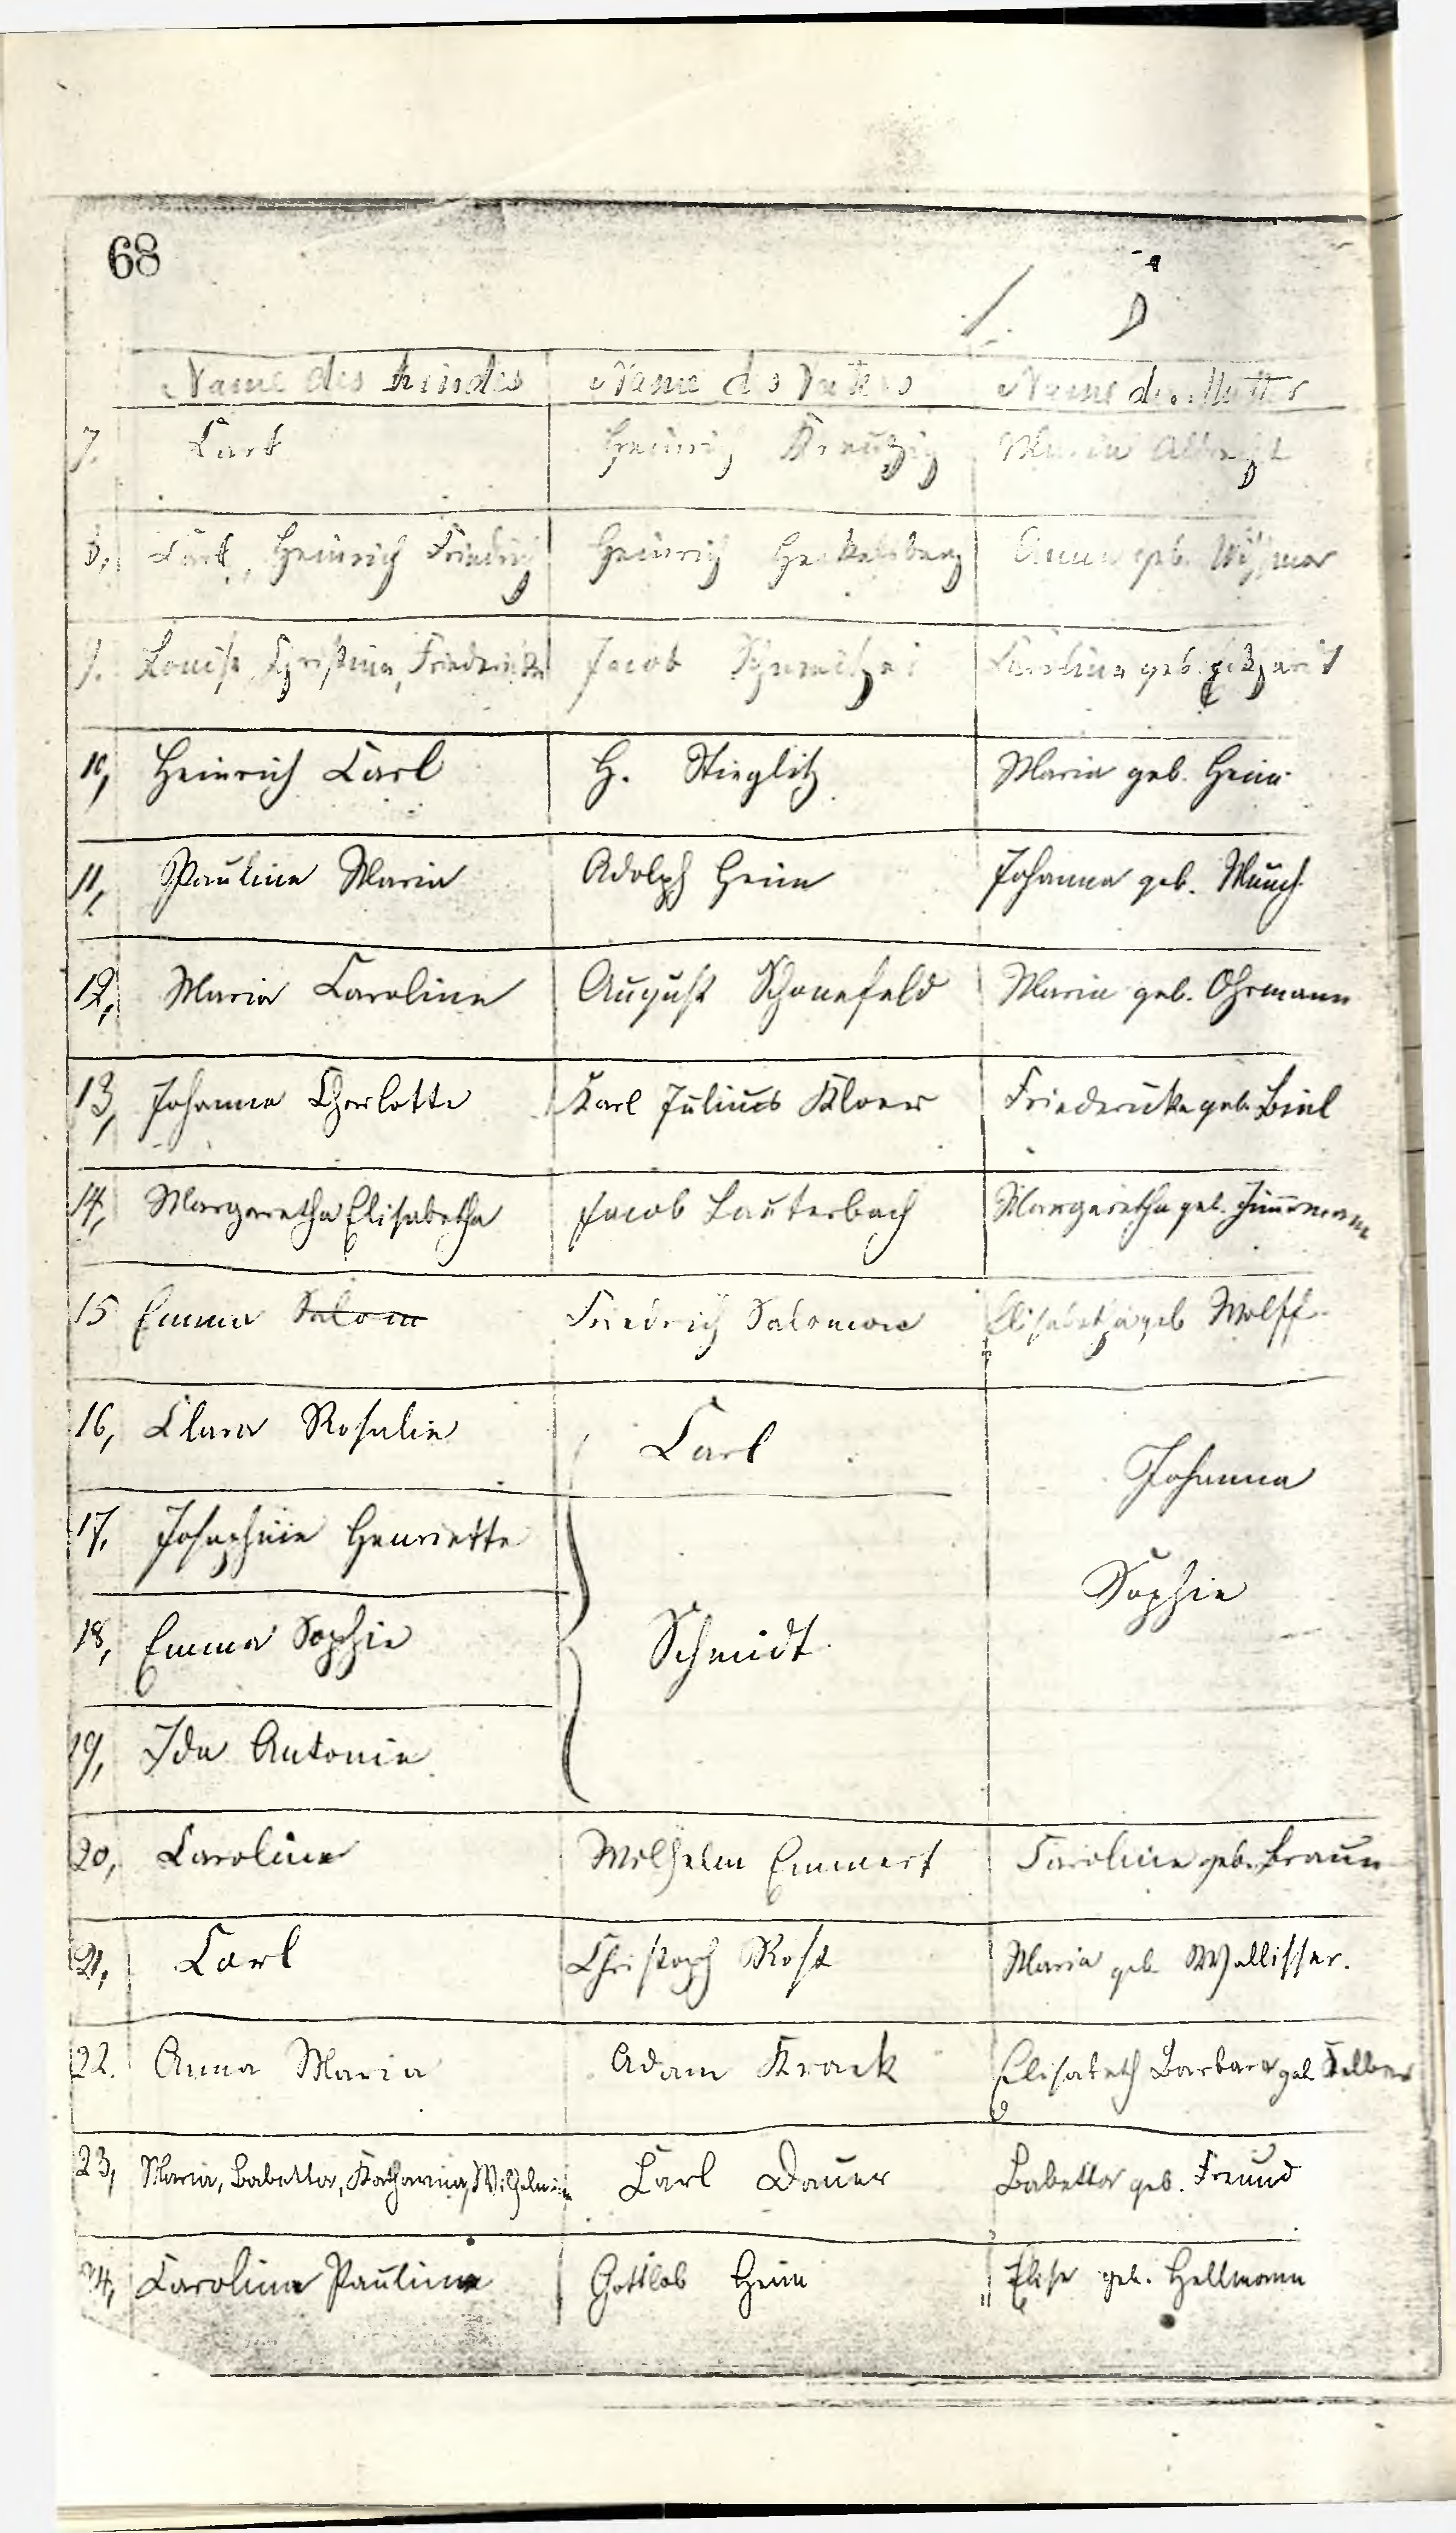 68
Name des Kindes Name des Vaters Name der Mutter
7. Carl Heinrich Kreutzig Maria Albrecht
8, Carl, Heinrich Friedrich Heinrich Heckelsberg Anna geb. Wissmar
9. Louise, Christina, Friedericke Jacob Carolina geb.
10, Heinrich Carl H. Stieglitz Maria geb. Heim
11, Paulina Maria Adolph Heim Johanna geb. Münch
12, Maria Carolina August Schönefeld Maria geb. Ohrmann
13, Johanna Charlotte Karl Julius Kloer Friedericke geb. Biel
14, Margaretha Elisabetha Jacob Lauterbach Margaretha geb. Zimmermann
15 Emma Salom Friedrich Salomon Elisabetha geb Wolff
16, Clara Rosalie Carl Johanna
17, Josephine Henriette Sophie
18, Emma Sophie Schmidt
19, Ida Antonie
20, Caroline Wilhelm Emmert Caroline geb. Braun
21, Carl Christoph Rost Maria geb Wallisser.
22. Anna Maria Adam Krack Elisabeth Barbara geb Felber
23, Maria, Babetta, Katharina, Wilhelmine Carl Dauer Babetta geb. Freund
24, Carolina Paulina Gottlob Heim Elise geb. Hellmann